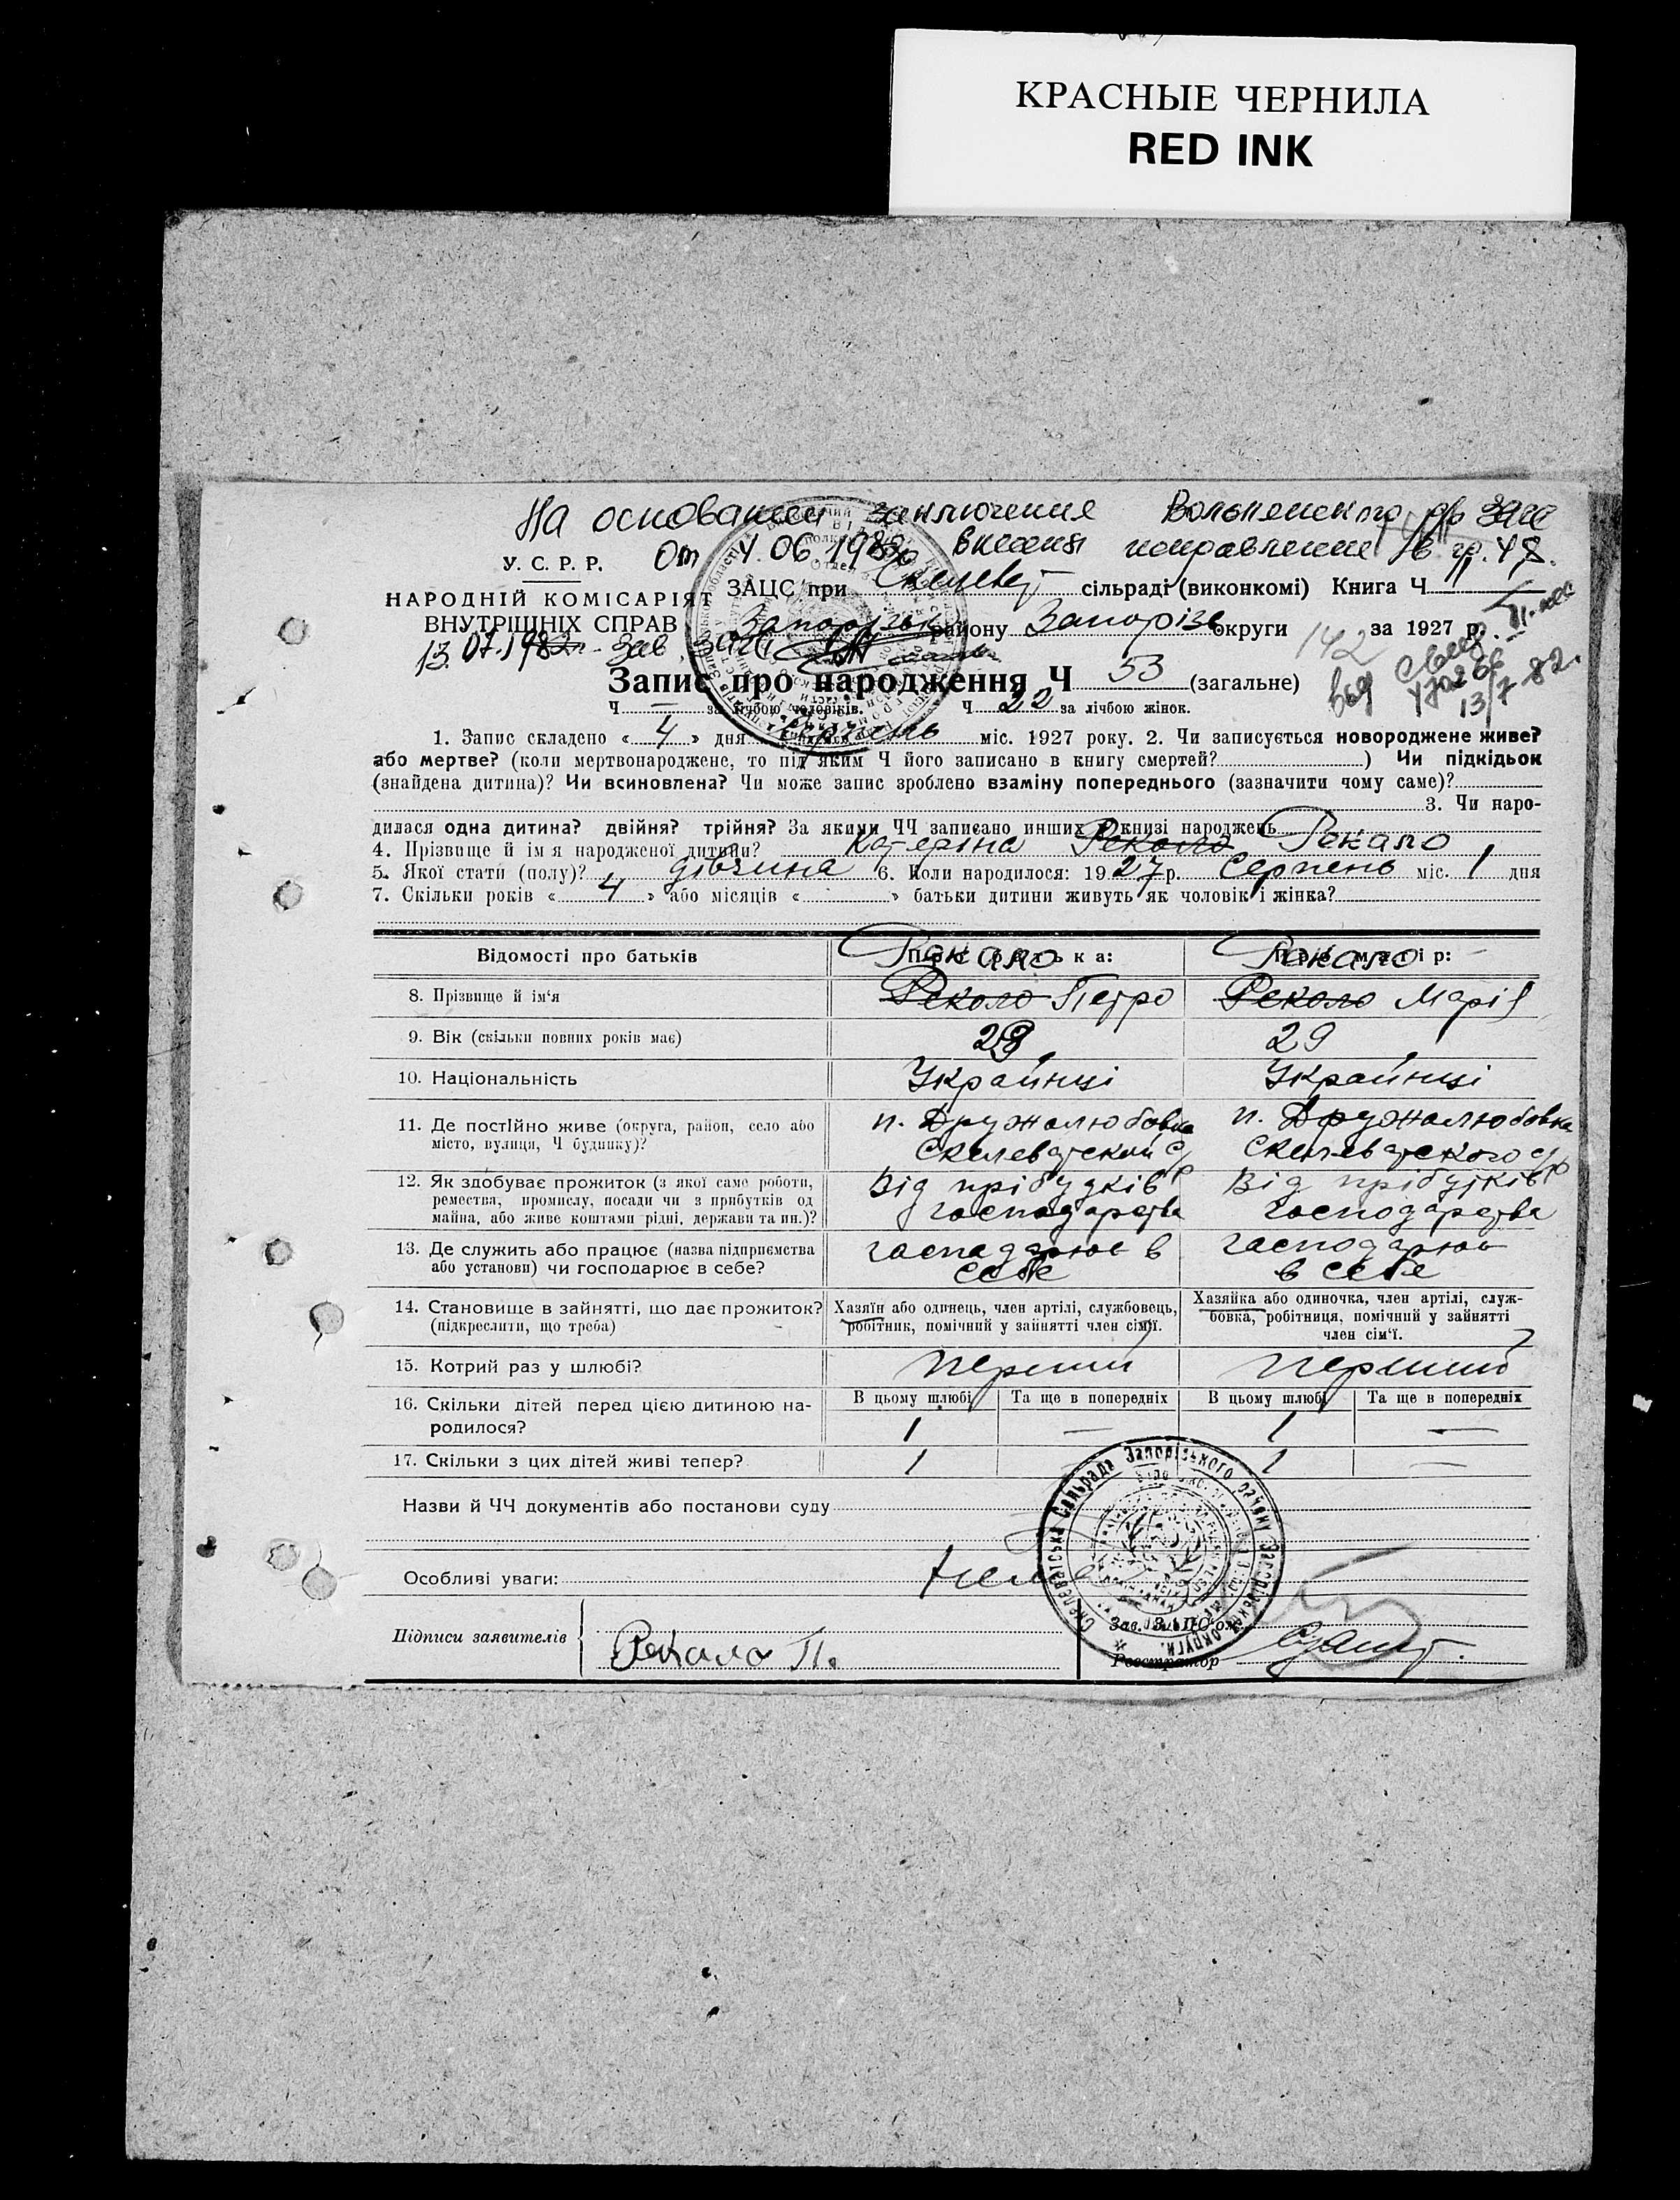 КРАСНЫЕ ЧЕРНИЛА
RED INK
На основании заключения Вольнянского р/о ЗАГС
От 4.06.1982 внесены исправления в гр. 4, 8.
У. С. Р. Р.
НАРОДНІЙ КОМІСАРІЯТ
ВНУТРІШНІХ СПРАВ
ЗАЦС при Скелеват сільраді (виконкомі) Книга Ч
Запорізьк району Запорізь округи 142 за 1927 р.
13.07.1982 Зав. ЗАГС
Запис про народження Ч 53 (загальне)
Ч — за лічбою чоловіків. Ч 22 за лічбою жінок.
13/7-82.
1. Запис складено « 4 » дня міс. 1927 року. 2. Чи записується новороджене живе?
або мертве? (коли мертвонароджене, то під яким Ч його записано в книгу смертей? ) Чи підкідьок
(знайдена дитина)? Чи всиновлена? Чи може запис зроблено взаміну попереднього (зазначити чому саме)?
3. Чи наро-
дилася одна дитина? двійня? трійня? За якими ЧЧ записано инших в книзі народжень
4. Прізвище й ім'я народженої дитини? Катеріна Реколо Рекало
5. Якої стати (полу)? дівчина 6. Коли народилося: 1927 р. Серпень міс. 1 дня
7. Скільки років « 4 » або місяців « » батьки дитини живуть як чоловік і жінка?
Відомості про батьків Про батька: Про матір:
Рекало Рекало
8. Прізвище й ім'я Реколо Петро Реколо Марія
9. Вік (скільки повних років має) 28 29
10. Національність Українці Українці
11. Де постійно живе (округа, район, село або
місто, вулиця, Ч будинку)?
п. Дружалюбовка п. Дружалюбовка
Скелеватский с/р Скелеватского с/р
12. Як здобуває прожиток (з якої саме роботи,
ремества, промислу, посади чи з прибутків од
майна, або живе коштами рідні, держави та ин.)?
Від прібудків Від прібутків
господарства господарства
13. Де служить або працює (назва підприємства
або установи) чи господарює в себе?
господарює в господарює
себе в себе
14. Становище в зайнятті, що дає прожиток?
(підкреслити, що треба)
Хазяїн або одинець, член артілі, службовець,
робітник, помічний у зайнятті член сім'ї.
Хазяйка або одиночка, член артілі, служ-
бовка, робітниця, помічний у зайнятті
член сім'ї.
15. Котрий раз у шлюбі? перший перший
16. Скільки дітей перед цією дитиною на-
родилося?
В цьому шлюбі Та ще в попередніх В цьому шлюбі Та ще в попередніх
1 — 1 —
17. Скільки з цих дітей живі тепер? 1 — 1 —
Назви й ЧЧ документів або постанови суду
Особливі уваги: нема
Скелеватська Сільрада Запорізького району Запорізької округи
Підписи заявителів Рекало П.
Зав. ЗАЦС'ом
Реєстратор